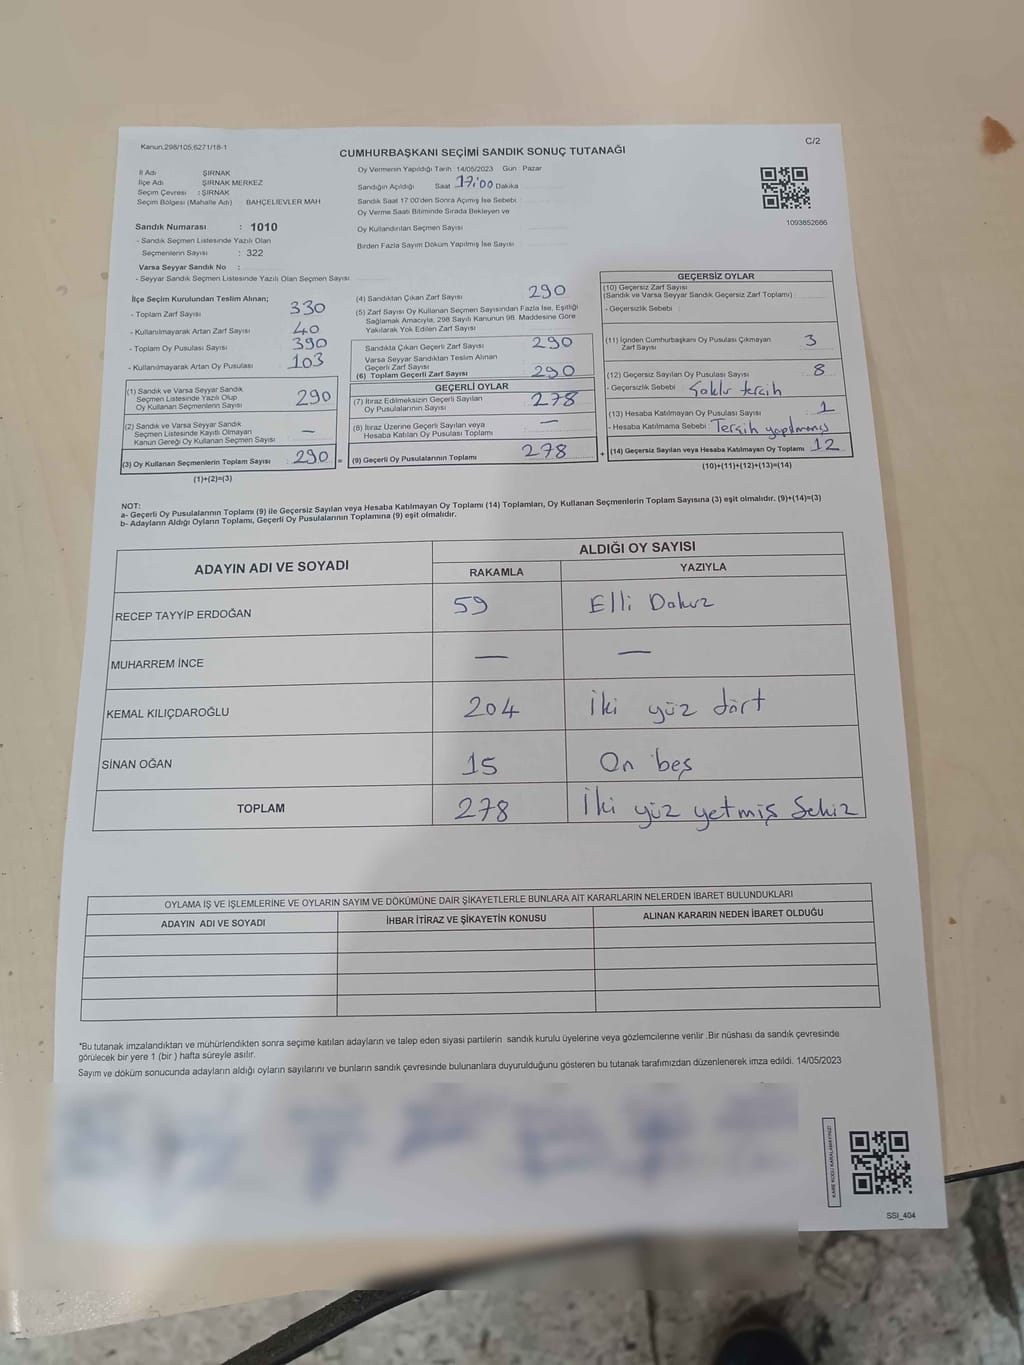 Kanun,298/105;6271/18-1
C/2
CUMHURBAŞKANI SEÇİMİ SANDIK SONUÇ TUTANAĞI
İl Adı ŞIRNAK
İlçe Adı ŞIRNAK MERKEZ
Seçim Çevresi : ŞIRNAK
Seçim Bölgesi (Mahalle Adı) BAHÇELİEVLER MAH
Sandık Numarası : 1010
- Sandık Seçmen Listesinde Yazılı Olan
Seçmenlerin Sayısı : 322
Varsa Seyyar Sandık No :
- Seyyar Sandık Seçmen Listesinde Yazılı Olan Seçmen Sayısı
Oy Vermenin Yapıldığı Tarih :14/05/2023 Gün : Pazar
Sandığın Açıldığı Saat 17:00 Dakika
Sandık Saat 17:00'den Sonra Açımış İse Sebebi
Oy Verme Saati Bitiminde Sırada Bekleyen ve
Oy Kullandırılan Seçmen Sayısı
Birden Fazla Sayım Döküm Yapılmış İse Sayısı
1093852686
İlçe Seçim Kurulundan Teslim Alınan;
- Toplam Zarf Sayısı 330
- Kullanılmayarak Artan Zarf Sayısı 40
- Toplam Oy Pusulası Sayısı 390
- Kullanılmayarak Artan Oy Pusulası 103
(1) Sandık ve Varsa Seyyar Sandık
Seçmen Listesinde Yazılı Olup
Oy Kullanan Seçmenlerin Sayısı 290
(2) Sandık ve Varsa Seyyar Sandık
Seçmen Listesinde Kayıtlı Olmayan
Kanun Gereği Oy Kullanan Seçmen Sayısı —
(3) Oy Kullanan Seçmenlerin Toplam Sayısı : 290 =
(1)+(2)=(3)
(4) Sandıktan Çıkan Zarf Sayısı 290
(5) Zarf Sayısı Oy Kullanan Seçmen Sayısından Fazla İse, Eşitliği
Sağlamak Amacıyla, 298 Sayılı Kanunun 98. Maddesine Göre
Yakılarak Yok Edilen Zarf Sayısı
Sandıkta Çıkan Geçerli Zarf Sayısı 290
Varsa Seyyar Sandıktan Teslim Alınan
Geçerli Zarf Sayısı
(6) Toplam Geçerli Zarf Sayısı 290
GEÇERLİ OYLAR
(7) İtiraz Edilmeksizin Geçerli Sayılan
Oy Pusulalarının Sayısı 278
(8) İtiraz Üzerine Geçerli Sayılan veya
Hesaba Katılan Oy Pusulası Toplamı —
(9) Geçerli Oy Pusulalarının Toplamı 278 +
GEÇERSİZ OYLAR
(10) Geçersiz Zarf Sayısı
(Sandık ve Varsa Seyyar Sandık Geçersiz Zarf Toplamı)
- Geçersizlik Sebebi :
(11) İçinden Cumhurbaşkanı Oy Pusulası Çıkmayan
Zarf Sayısı 3
(12) Geçersiz Sayılan Oy Pusulası Sayısı 8
- Geçersizlik Sebebi : tercih
(13) Hesaba Katılmayan Oy Pusulası Sayısı 1
- Hesaba Katılmama Sebebi : Tercih yapılmamış
(14) Geçersiz Sayılan veya Hesaba Katılmayan Oy Toplamı 12
(10)+(11)+(12)+(13)=(14)
NOT:
a- Geçerli Oy Pusulalarının Toplamı (9) ile Geçersiz Sayılan veya Hesaba Katılmayan Oy Toplamı (14) Toplamları, Oy Kullanan Seçmenlerin Toplam Sayısına (3) eşit olmalıdır. (9)+(14)=(3)
b- Adayların Aldığı Oyların Toplamı, Geçerli Oy Pusulalarının Toplamına (9) eşit olmalıdır.
ADAYIN ADI VE SOYADI
ALDIĞI OY SAYISI
RAKAMLA YAZIYLA
RECEP TAYYİP ERDOĞAN 59 Elli Dokuz
MUHARREM İNCE — —
KEMAL KILIÇDAROĞLU 204 İki yüz dört
SİNAN OĞAN 15 On beş
TOPLAM 278 İki yüz yetmiş Sekiz
OYLAMA İŞ VE İŞLEMLERİNE VE OYLARIN SAYIM VE DÖKÜMÜNE DAİR ŞİKAYETLERLE BUNLARA AİT KARARLARIN NELERDEN İBARET BULUNDUKLARI
ADAYIN ADI VE SOYADI İHBAR İTİRAZ VE ŞİKAYETİN KONUSU ALINAN KARARIN NEDEN İBARET OLDUĞU
*Bu tutanak imzalandıktan ve mühürlendikten sonra seçime katılan adayların ve talep eden siyasi partilerin sandık kurulu üyelerine veya gözlemcilerine verilir .Bir nüshası da sandık çevresinde
görülecek bir yere 1 (bir ) hafta süreyle asılır.
Sayım ve döküm sonucunda adayların aldığı oyların sayılarını ve bunların sandık çevresinde bulunanlara duyurulduğunu gösteren bu tutanak tarafımızdan düzenlenerek imza edildi. 14/05/2023
KARE KODU KARALAMAYINIZ!
SSI_404